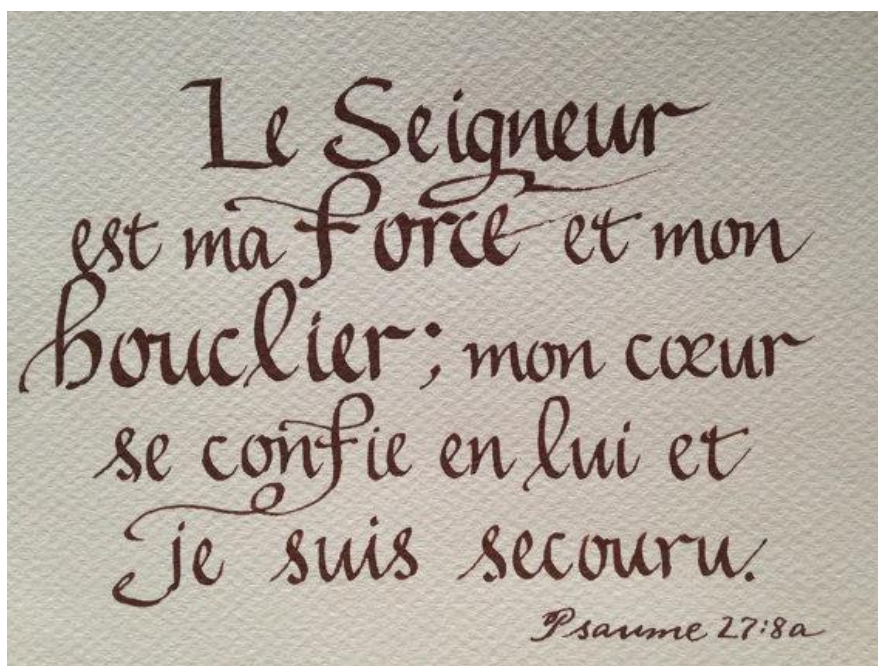 Le Seigneur
est ma force et mon
bouclier; mon cœur
se confie en lui et
je suis secouru.
Psaume 27:8a